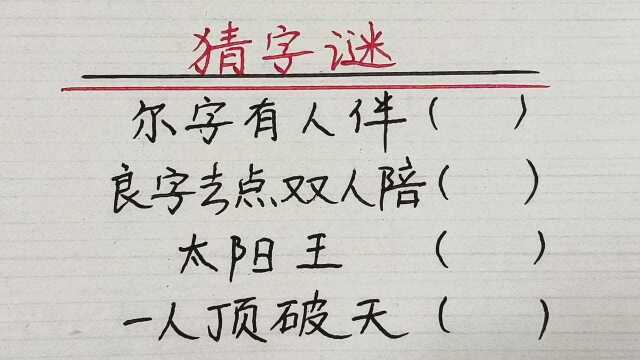 猜字谜
尔字有人伴（ ）
良字去点双人陪（ ）
太阳王（ ）
一人顶破天（ ）